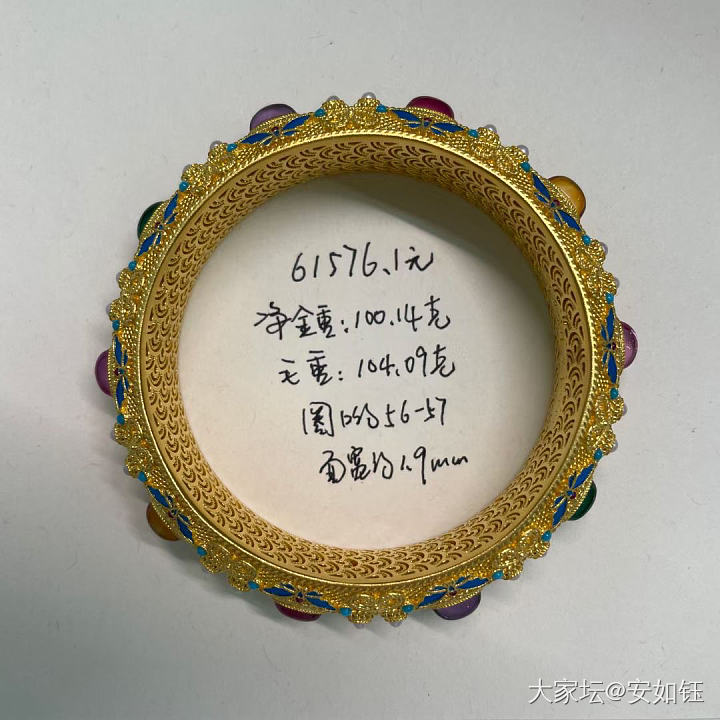 61576.1元
净金重:100.14克
毛重:104.09克
圈口约56-57
面宽约1.9mm
大家坛@安如钰